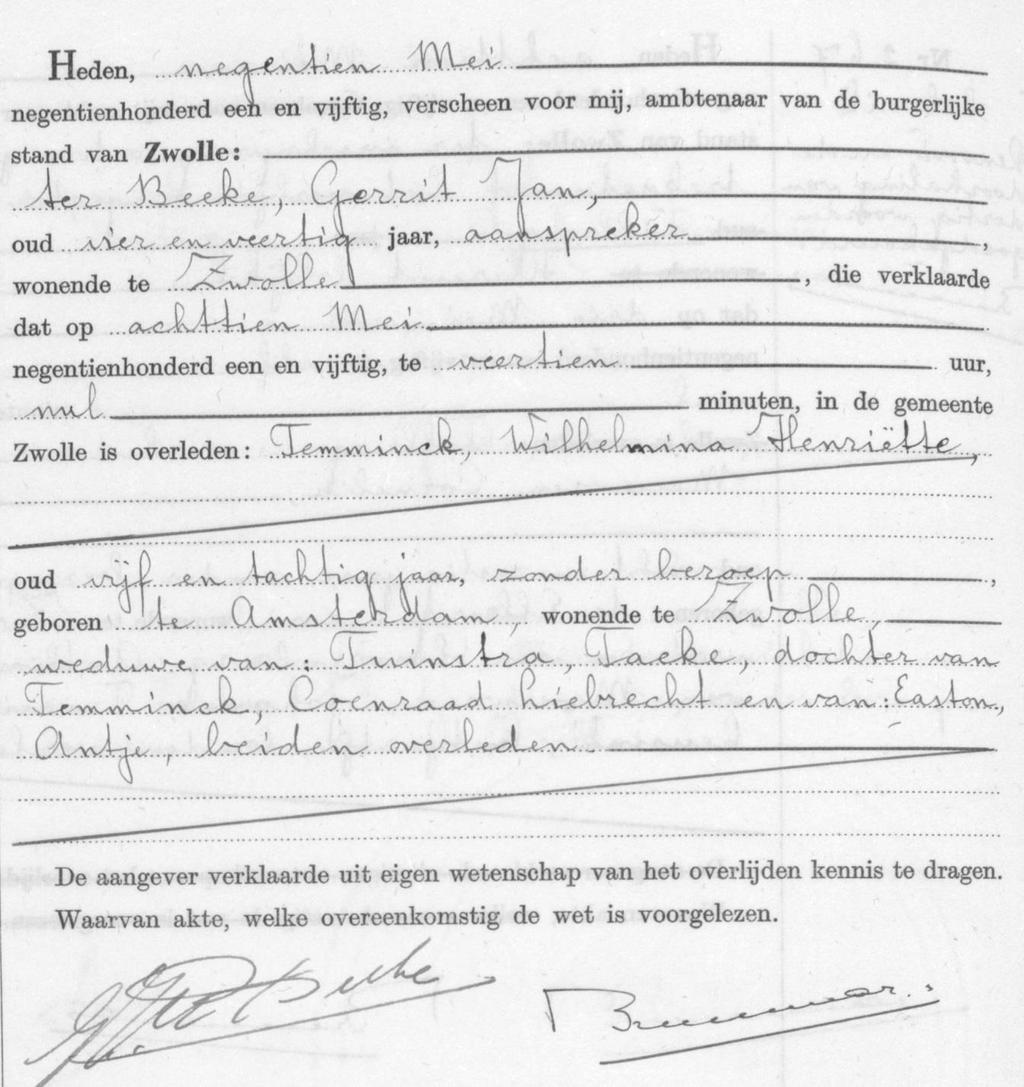 Heden, negentien Mei
negentienhonderd een en vijftig, verscheen voor mij, ambtenaar van de burgerlijke
stand van Zwolle:
ter Beeke, Gerrit Jan,
oud vier en veertig jaar, aanspreker,
wonende te Zwolle, die verklaarde
dat op achttien Mei
negentienhonderd een en vijftig, te veertien uur,
nul minuten, in de gemeente
Zwolle is overleden: Temminck, Wilhelmina Henriëtte,
oud vijf en tachtig jaar, zonder beroep,
geboren te Amsterdam, wonende te Zwolle,
weduwe van: Tuinstra, Taeke, dochter van
Temminck, Coenraad Liebrecht en van: Easton,
Antje, beiden overleden
De aangever verklaarde uit eigen wetenschap van het overlijden kennis te dragen.
Waarvan akte, welke overeenkomstig de wet is voorgelezen.